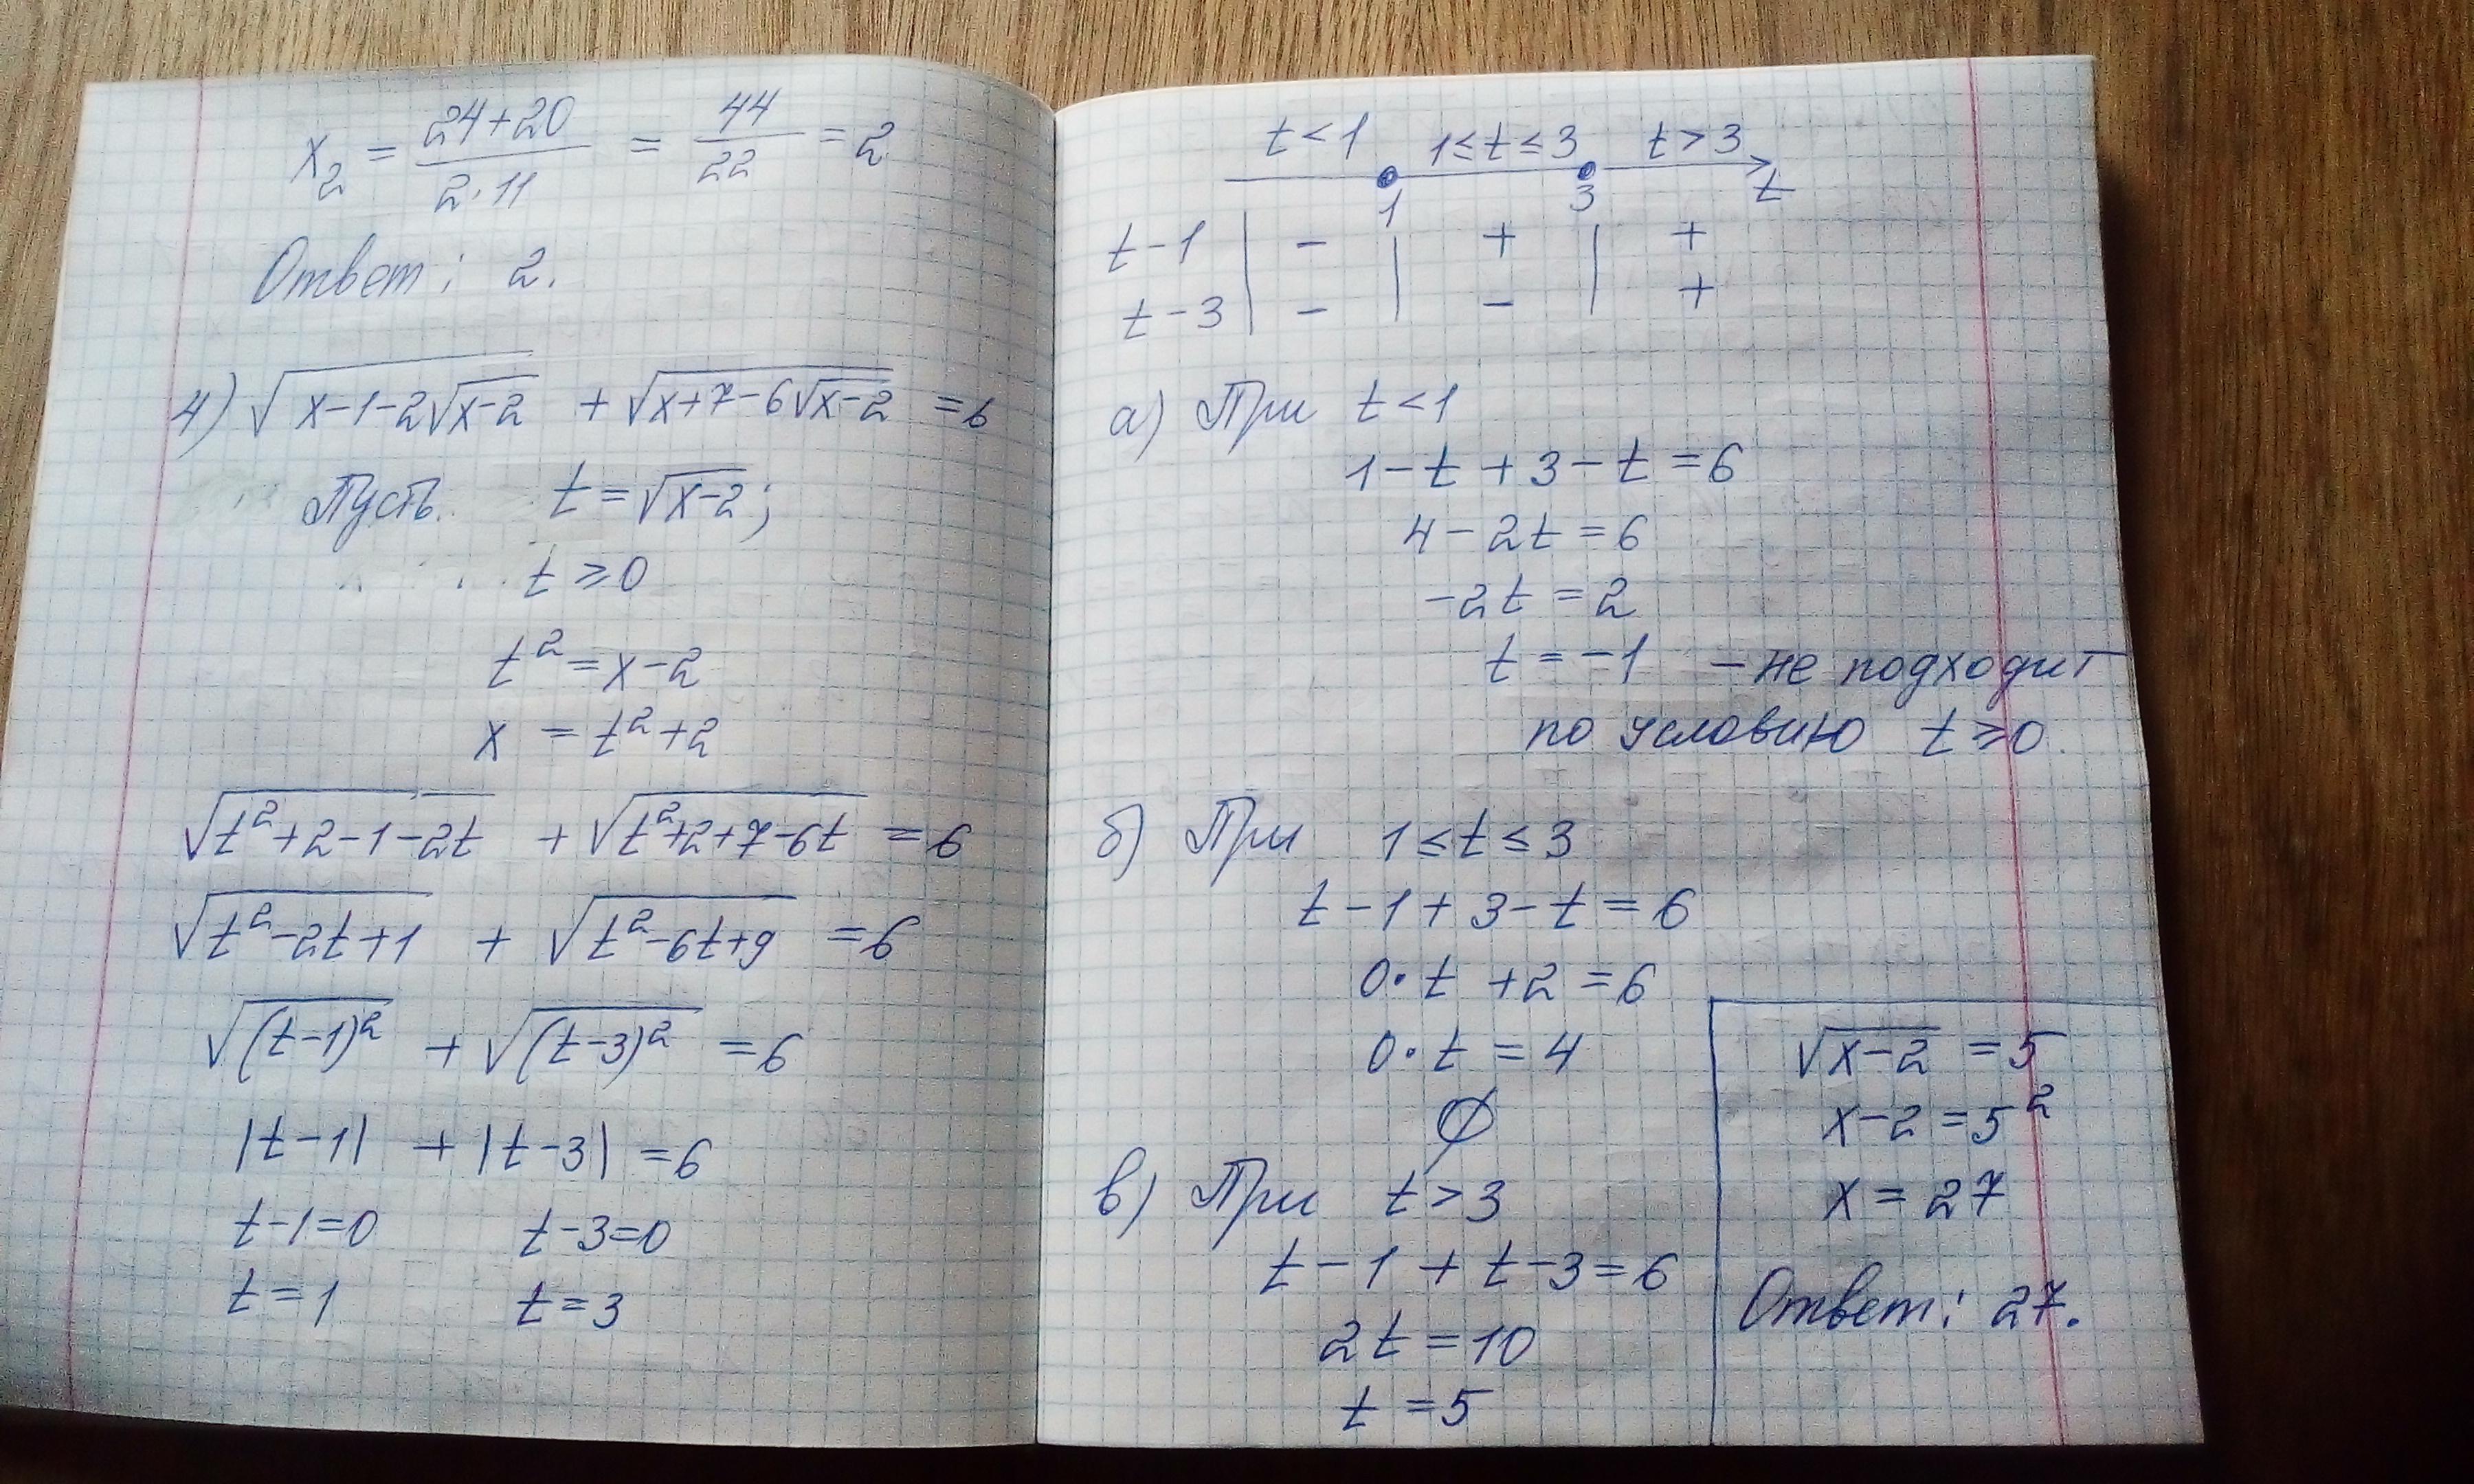 x₂ = (24+20)/(2·11) = 44/22 = 2
Ответ: 2.
4) √(x-1-2√(x-2)) + √(x+7-6√(x-2)) = 6
Пусть t = √(x-2);
t ≥ 0
t² = x-2
x = t²+2
√(t²+2-1-2t) + √(t²+2+7-6t) = 6
√(t²-2t+1) + √(t²-6t+9) = 6
√((t-1)²) + √((t-3)²) = 6
|t-1| + |t-3| = 6
t-1=0 t-3=0
t=1 t=3
t<1 1≤t≤3 t>3
1 3 t
t-1 | - | + | +
t-3 | - | - | +
а) При t<1
1-t+3-t=6
4-2t=6
-2t=2
t=-1 - не подходит
по условию t≥0.
б) При 1≤t≤3
t-1+3-t=6
0·t+2=6
0·t=4
∅
в) При t>3
t-1+t-3=6
2t=10
t=5
√(x-2) = 5
x-2=5²
x=27
Ответ: 27.